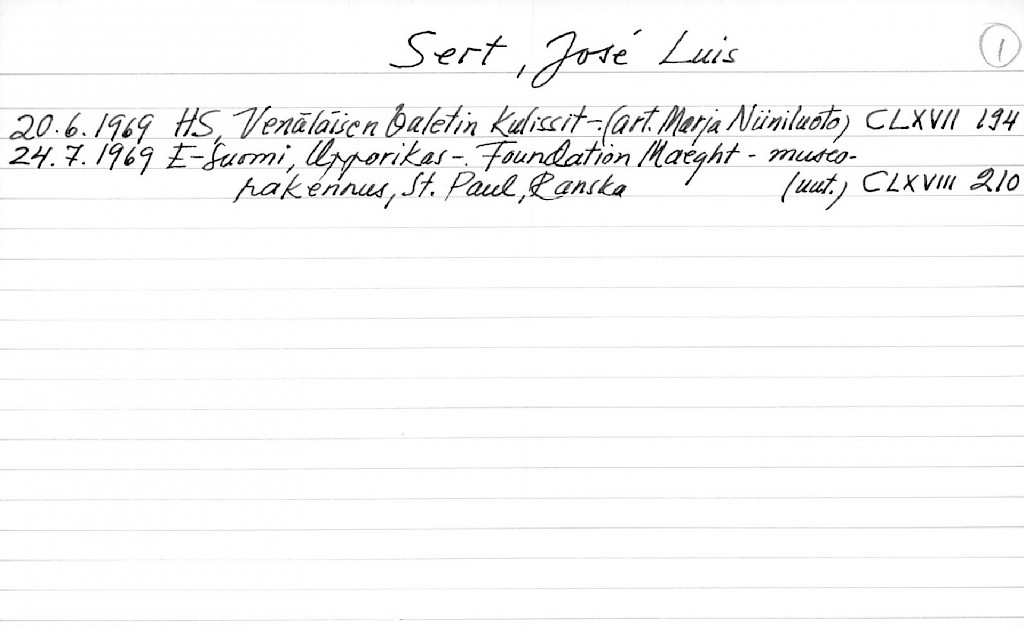 Sert, José Luis 1
20.6.1969 HS, Venäläisen baletin kulissit - (art. Marja Niiniluoto) CLXVII 194
24.7.1969 E-Suomi, Upporikas -. Foundation Maeght - museo-
rakennus, St. Paul, Ranska (uut.) CLXVIII 210